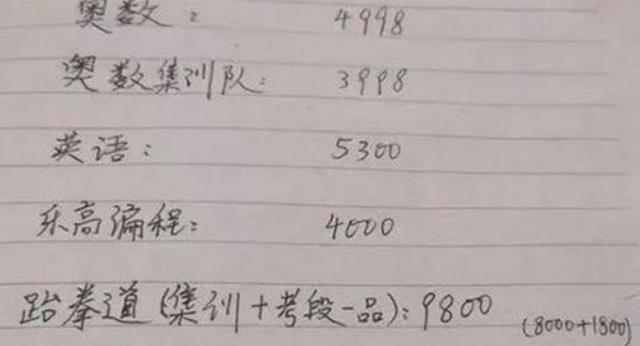 奥数: 4998
奥数集训队: 3998
英语: 5300
乐高编程: 4000
跆拳道(集训+考段一品): 9800 (8000+1800)